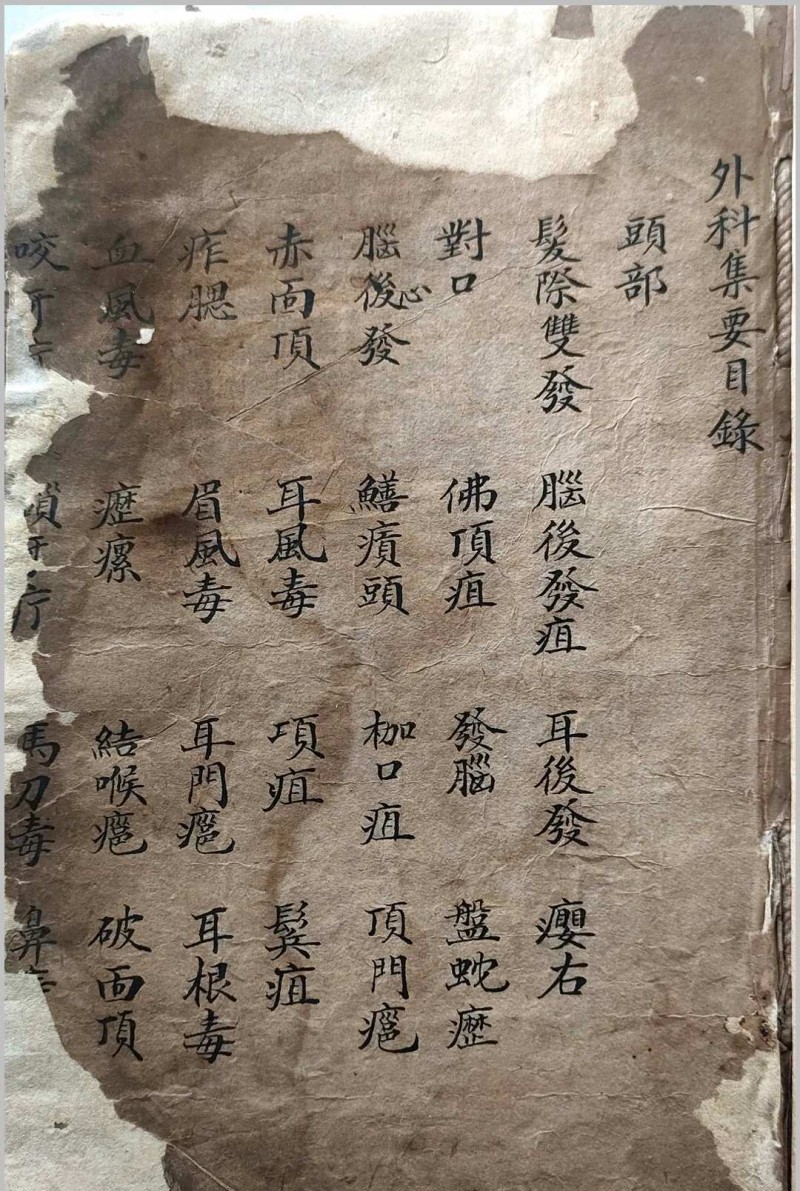 外科集要目錄
頭部
髮際雙發 腦後發疽 耳後發 癭右
對口 佛頂疽 發腦 盤蛇瀝
腦後發心 鱔㿉頭 枷口疽 頂門癰
赤面頂 耳風毒 項疽 鬓疽
痄腮 眉風毒 耳門癰 耳根毒
血風毒 瀝瘰 結喉癰 破面頂
咬牙疔 馬刀毒 鼻